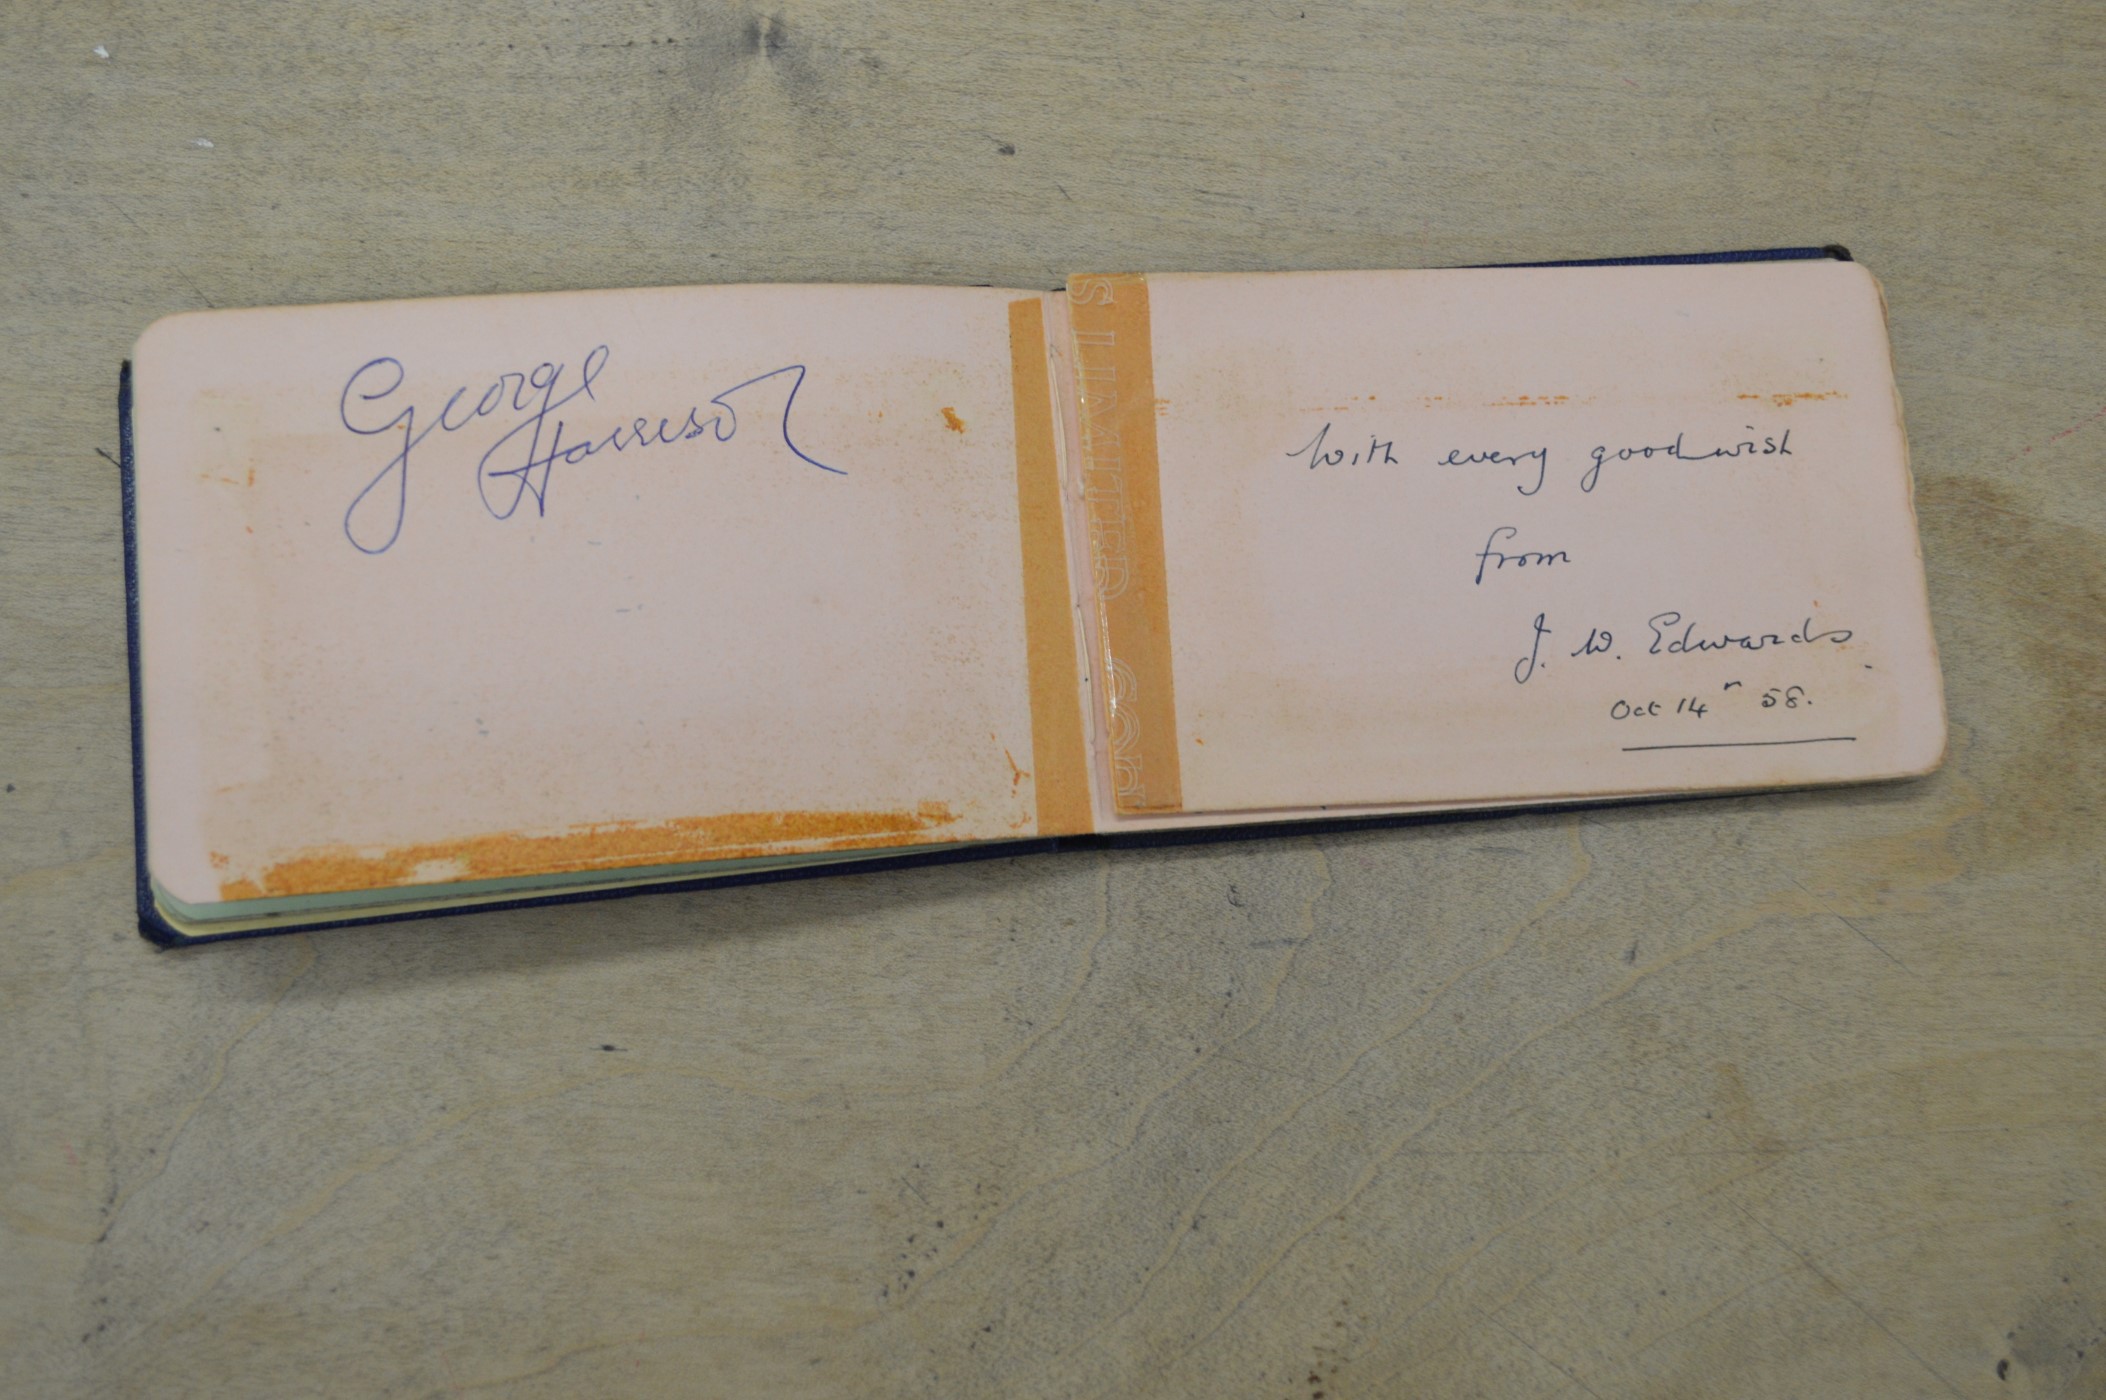 George
Harrison
With every good wish
from
J. W. Edwards.
Oct 14th 58.